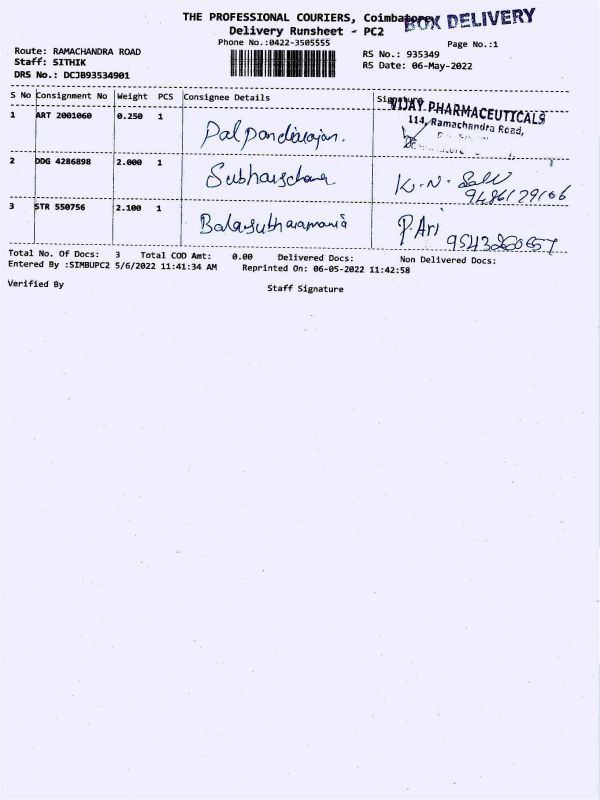 THE PROFESSIONAL COURIERS, Coimbatore
BOX DELIVERY
Delivery Runsheet - PC2
Phone No.:0422-3505555
Page No.:1
Route: RAMACHANDRA ROAD
RS No.: 935349
Staff: SITHIK
RS Date: 06-May-2022
DRS No.: DCJB93534901
S No Consignment No Weight PCS Consignee Details Signature
1 ART 2001060 0.250 1 Palpandiarajan.
VIJAY PHARMACEUTICALS
114, Ramachandra Road,
2 DDG 4286898 2.000 1 K.N.
9486129106
3 STR 550756 2.100 1 Balasubharamania P.Ari
Total No. Of Docs: 3 Total COD Amt: 0.00 Delivered Docs: Non Delivered Docs:
Entered By :SIMBUPC2 5/6/2022 11:41:34 AM Reprinted On: 06-05-2022 11:42:58
Verified By
Staff Signature